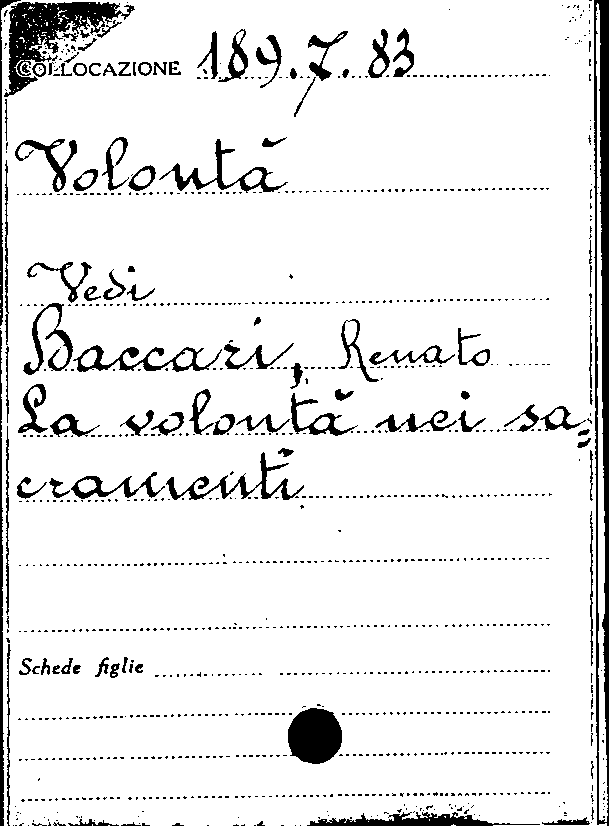 COLLOCAZIONE 189.7.83
Volontà
Vedi
Baccari, Renato
La volontà nei sa=
cramenti
Schede figlie